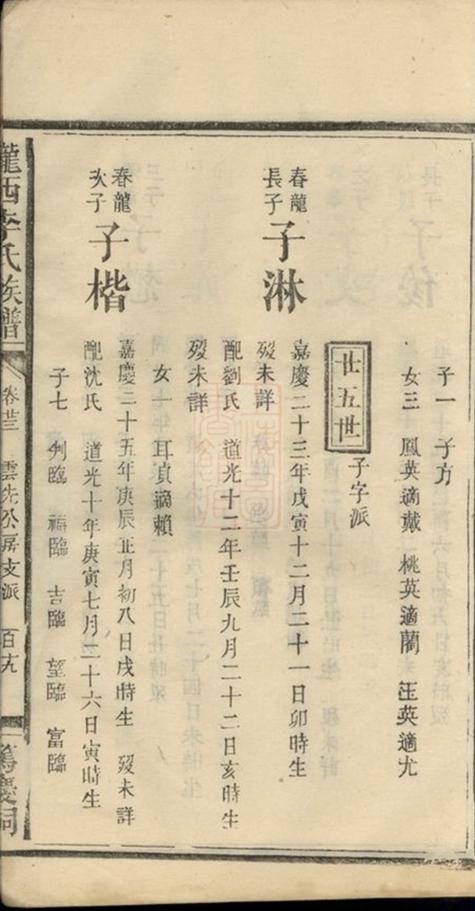 子一 子方
女三 鳳英適戴 桃英適藺 玉英適尤
廿五世 子字派
春龍長子 子淋 嘉慶二十三年戊寅十二月二十一日卯時生
歿未詳
配劉氏 道光十二年壬辰九月二十二日亥時生
歿未詳
女一 耳貞適賴
春龍次子 子楷 嘉慶二十五年庚辰正月初八日戌時生 歿未詳
配沈氏 道光十年庚寅七月二十六日寅時生
子七 列臨 福臨 吉臨 望臨 富臨
隴西李氏族譜 卷廿三 雲先公房支派 百九 篤慶祠